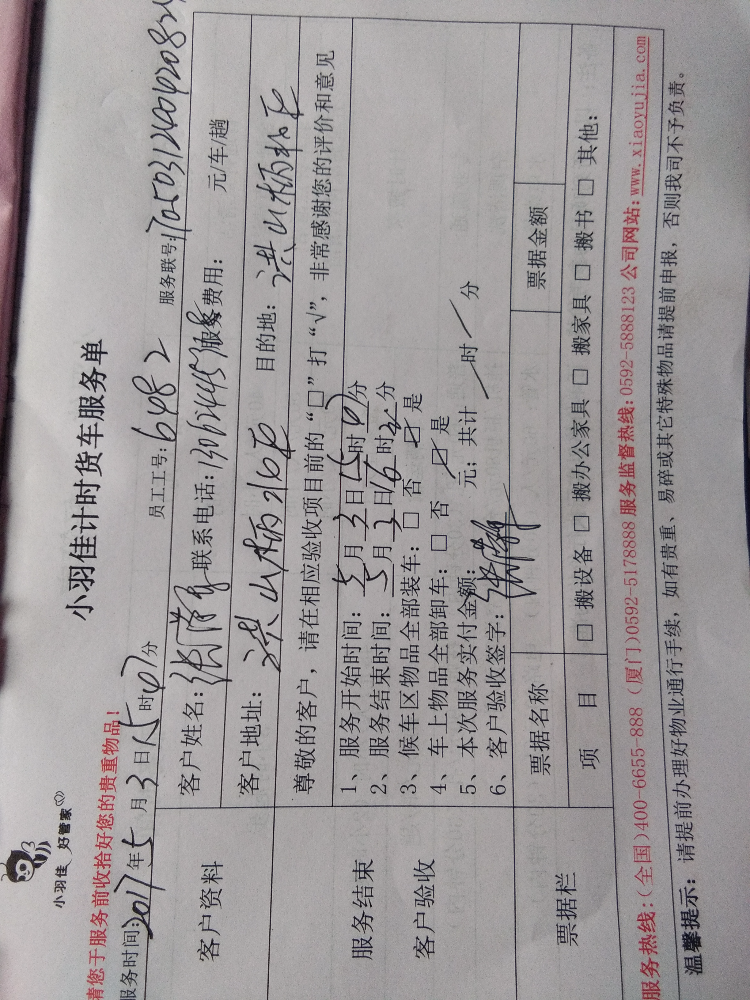 小羽佳 好管家
小羽佳计时货车服务单
请您于服务前收拾好您的贵重物品!
服务时间:2017年5月3日15时07分 员工工号:6482 服务联号:
客户资料
客户姓名: 联系电话: 服务费用: 元/车/趟
客户地址:洪山柄 目的地:洪山柄
尊敬的客户,请在相应验收项目前的“□”打“√”,非常感谢您的评价和意见
服务结束
客户验收
1、服务开始时间:5月3日15时07分
2、服务结束时间:5月3日16时 分
3、候车区物品全部装车:□ 否 ☑ 是
4、车上物品全部卸车:□ 否 ☑ 是
5、本次服务实付金额: 元;共计 时 分
6、客户验收签字:
票据栏
票据名称 票据金额
项 目 □ 搬设备 □ 搬办公家具 □ 搬家具 □ 搬书 □ 其他:
服务热线:(全国)400-6655-888 (厦门)0592-5178888 服务监督热线:0592-5888123 公司网站:www.xiaoyujia.com
温馨提示: 请提前办理好物业通行手续, 如有贵重、易碎或其它特殊物品请提前申报, 否则我司不予负责。